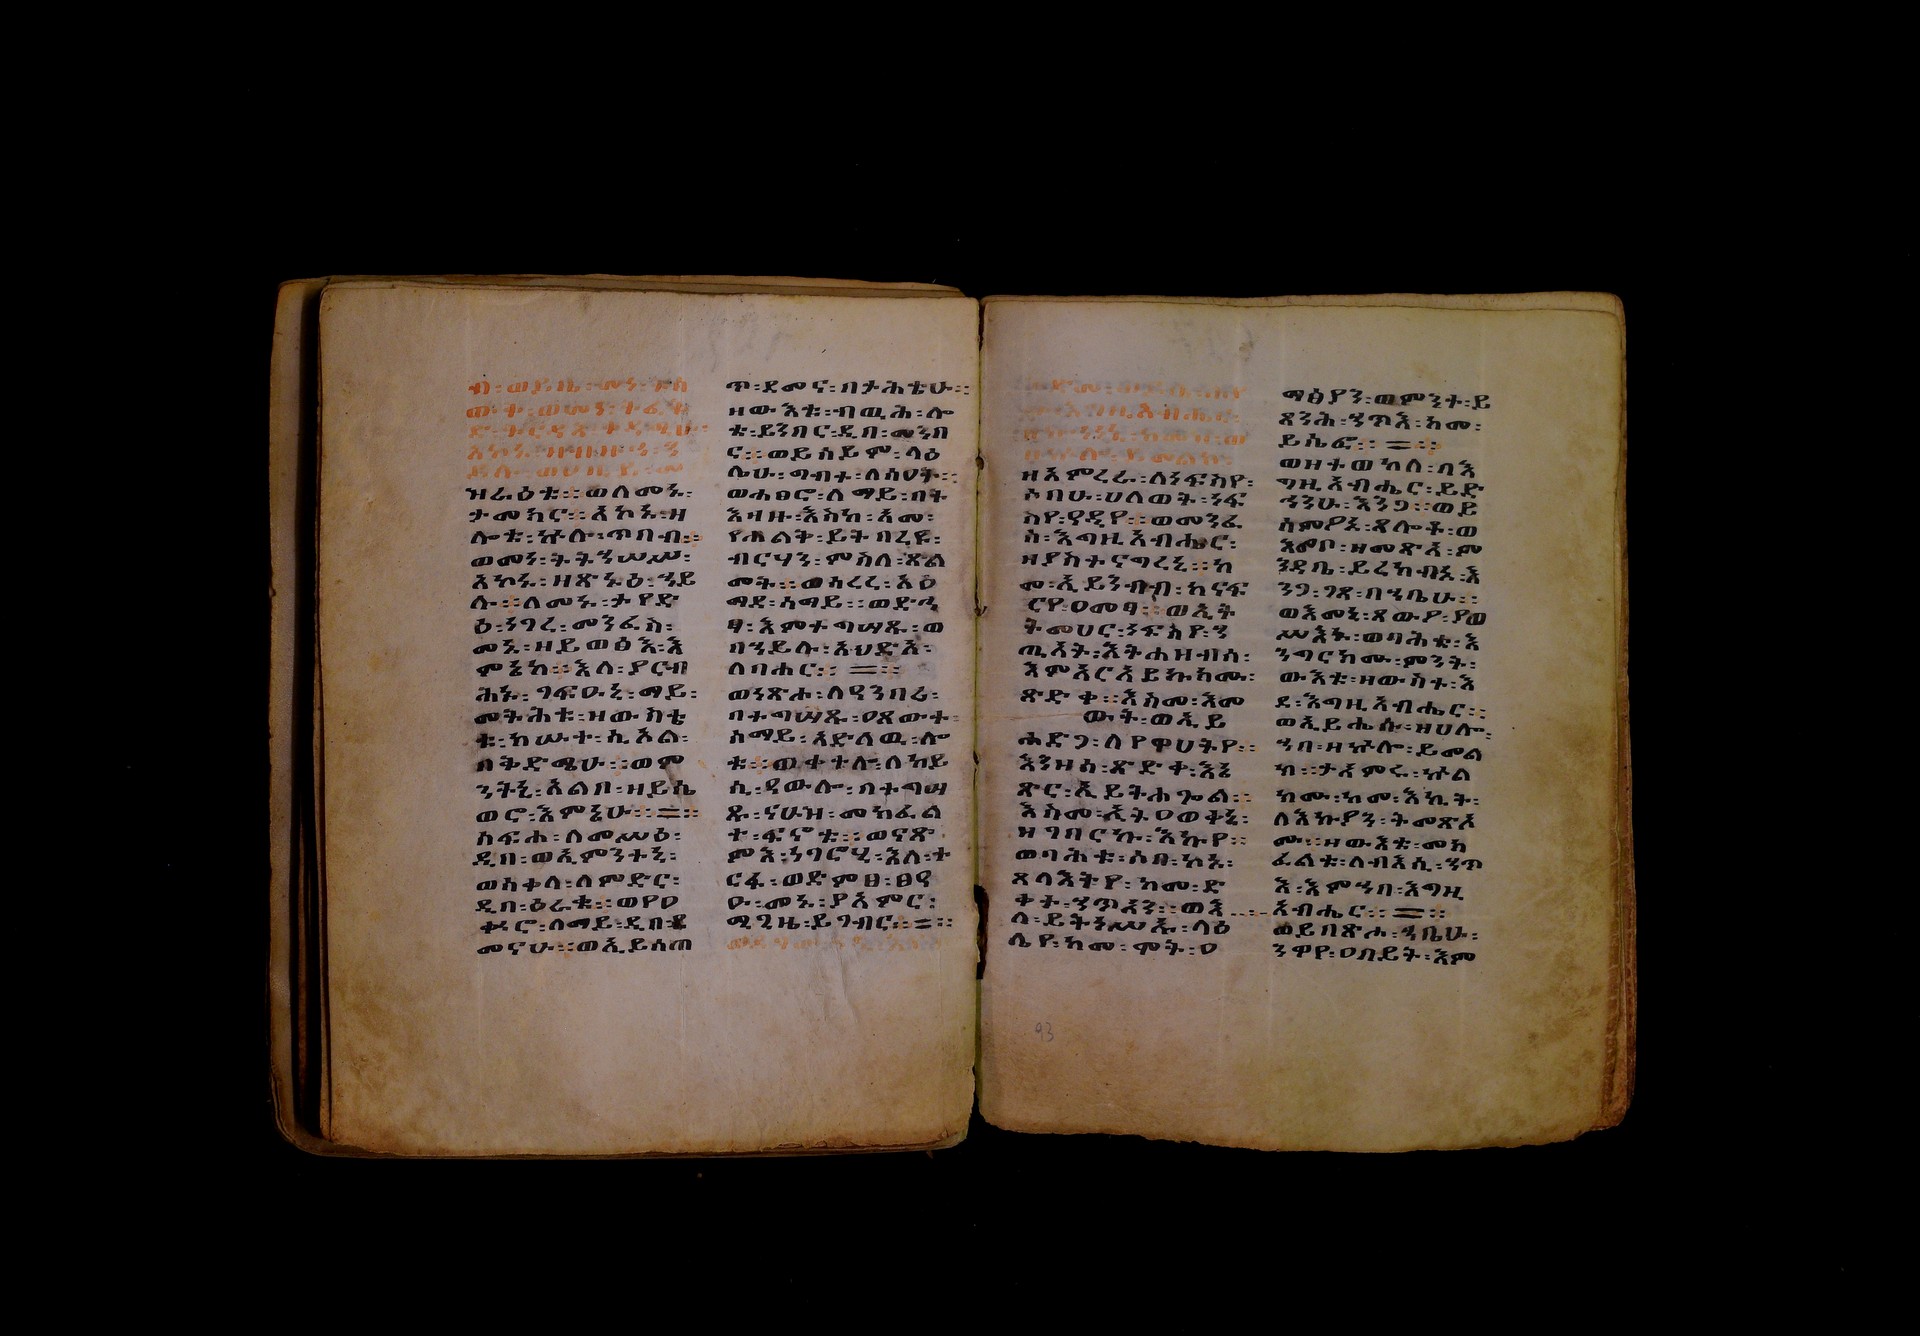 ዝራዕቱ ። ወለመኑ ፡
ታመክር ። አኮኑ ፡ ዘ
ሎቱ ፡ ኵሉ ፡ ጥበብ ።
ወመን ፡ ትትኀሠሥ ፡
አኮኑ ፡ ዘጽኑዕ ፡ ኀይ
ሉ ። ለመኑ ፡ ታየድ
ዕ ፡ ነገረ ፡ መንፈስ ፡
መኑ ፡ ዘይወፅእ ፡ እ
ምኔከ ። እለ ፡ ያርብ
ሕኑ ፡ ገፍዑኒ ፡ ማይ ፡
መትሕቱ ፡ ዘውስቴ
ቱ ፡ ክሡተ ፡ ሲኦል ፡
በቅድሜሁ ። ወም
ንትኒ ፡ አልቦ ፡ ዘይሴ
ወሮ ፡ እምኔሁ ። =።
ሰፍሐ ፡ ለመሥዕ ፡
ዲበ ፡ ወኢምንተኒ ፡
ወሰቀላ ፡ ለምድር ፡
ዲበ ፡ ዕራቁ ። ወየዐ
ቍሮ ፡ ለማይ ፡ ዲበ ፡ ደ
መናሁ ። ወኢይሰጠ
ጥ ፡ ደመና ፡ በታሕቴሁ ።
ዘውእቱ ፡ ብዉሕ ፡ ሎ
ቱ ፡ ይንበር ፡ ዲበ ፡ መንበ
ር ። ወይሰይም ፡ ላዕ
ሌሁ ፡ ግብተ ፡ ለሰዐት ።
ወሐፀሮ ፡ ለማይ ፡ በት
እዛዙ ፡ እስከ ፡ አመ ፡
የሐልቅ ፡ ይትበረዩ ፡
ብርሃን ፡ ምስለ ፡ ጽል
መት ። ወሰረረ ፡ አዕ
ማደ ፡ ሰማይ ። ወድኅ
ፃ ፡ እምተግሣጹ ፡ ወ
በኀይሉ ፡ አህድአ ፡
ለባሕር ። =።
ወነጽሐ ፡ ለዓንበሪ ፡
በተግሣጹ ፡ ዐጸውተ ፡
ሰማይ ፡ አድለዉ ፡ ሎ
ቱ ። ወቀተሎ ፡ ለከይ
ሲ ፡ ዓውሎ ፡ በተግሣ
ጹ ፡ ናሁዝ ፡ መክፈል
ተ ፡ ፍኖቱ ። ወናጽ
ምእ ፡ ነገሮሂ ፡ እለ ፡ ተ
ርፋ ፡ ወድምፀ ፡ ፀዓ
ዑ ፡ መኑ ፡ ያአምር ፡
ማጊዜ ፡ ይገብር ። =።
ዘእምረራ ፡ ለነፍስየ ፡
ሶበሁ ፡ ሀለወት ፡ ነፍ
ስየ ፡ ዓዲየ ። ወመንፈ
ሰ ፡ እግዚአብሔር ፡
ዘያስተናግረኒ ። ከ
መ ፡ ኢይንብብ ፡ ከናፍ
ርየ ፡ ዐመፃ ። ወኢት
ትመሀር ፡ ነፍስየ ፡ ኀ
ጢአት ፡ እትሐዝብሰ ፡
እምአርአይኩክሙ ፡
ጽድቀ ። እስመ ፡ እመ
ውት ፡ ወኢይ
ሕድግ ፡ ለየዋሀትየ ።
እንዘሰ ፡ ጽድቀ ፡ እኔ
ጽር ፡ ኢይትሐጐል ።
እስመ ፡ ኢትዐወቅኒ ፡
ዘገበርኩ ፡ እኩየ ።
ወባሕቱ ፡ ሶበ ፡ ከኑ ፡
ጸላእትየ ፡ ከመ ፡ ድ
ቀተ ፡ ኀጥአን ። ወእ
ለ ፡ ይትነሥኡ ፡ ላዕ
ሌየ ፡ ከመ ፡ ሞት ፡ ዐ
ማፅያን ፡ ወምንት ፡ ይ
ጸንሕ ፡ ኀጥእ ፡ ከመ ፡
ይሴፎ ። =።
ወዘተወከለ ፡ በእ
ግዚአብሔር ፡ ይድ
ኅንሁ ፡ እንጋ ። ወይ
ሰምዖኑ ፡ ጸሎቶ ፡ ወ
እመቦ ፡ ዘመጽአ ፡ ም
ንዳቤ ፡ ይረክብኑ ፡ እ
ንጋ ፡ ገጸ ፡ በኀቤሁ ።
ወእመኒ ፡ ጸውዖ ፡ ያወ
ሥእኑ ፡ ወባሕቱ ፡ እ
ንግርክሙ ፡ ምንት ፡
ውእቱ ፡ ዘውስተ ፡ እ
ደ ፡ እግዚአብሔር ።
ወኢይሔሱ ፡ ዘሀሎ ፡
ኀበ ፡ ዘኵሎ ፡ ይመል
ክ ። ታአምሩ ፡ ኵል
ክሙ ፡ ከመ ፡ እኪት ፡
ለእኩያን ፡ ትመጽእ
ሙ ። ዘውእቱ ፡ መክ
ፈልቱ ፡ ለብእሲ ፡ ኀጥ
እ ፡ እምኀበ ፡ እግዚ
አብሔር ። =።
ወይበጽሐ ፡ ኀቤሁ ፡
ንዋየ ፡ ዐበይት ፡ እም
93